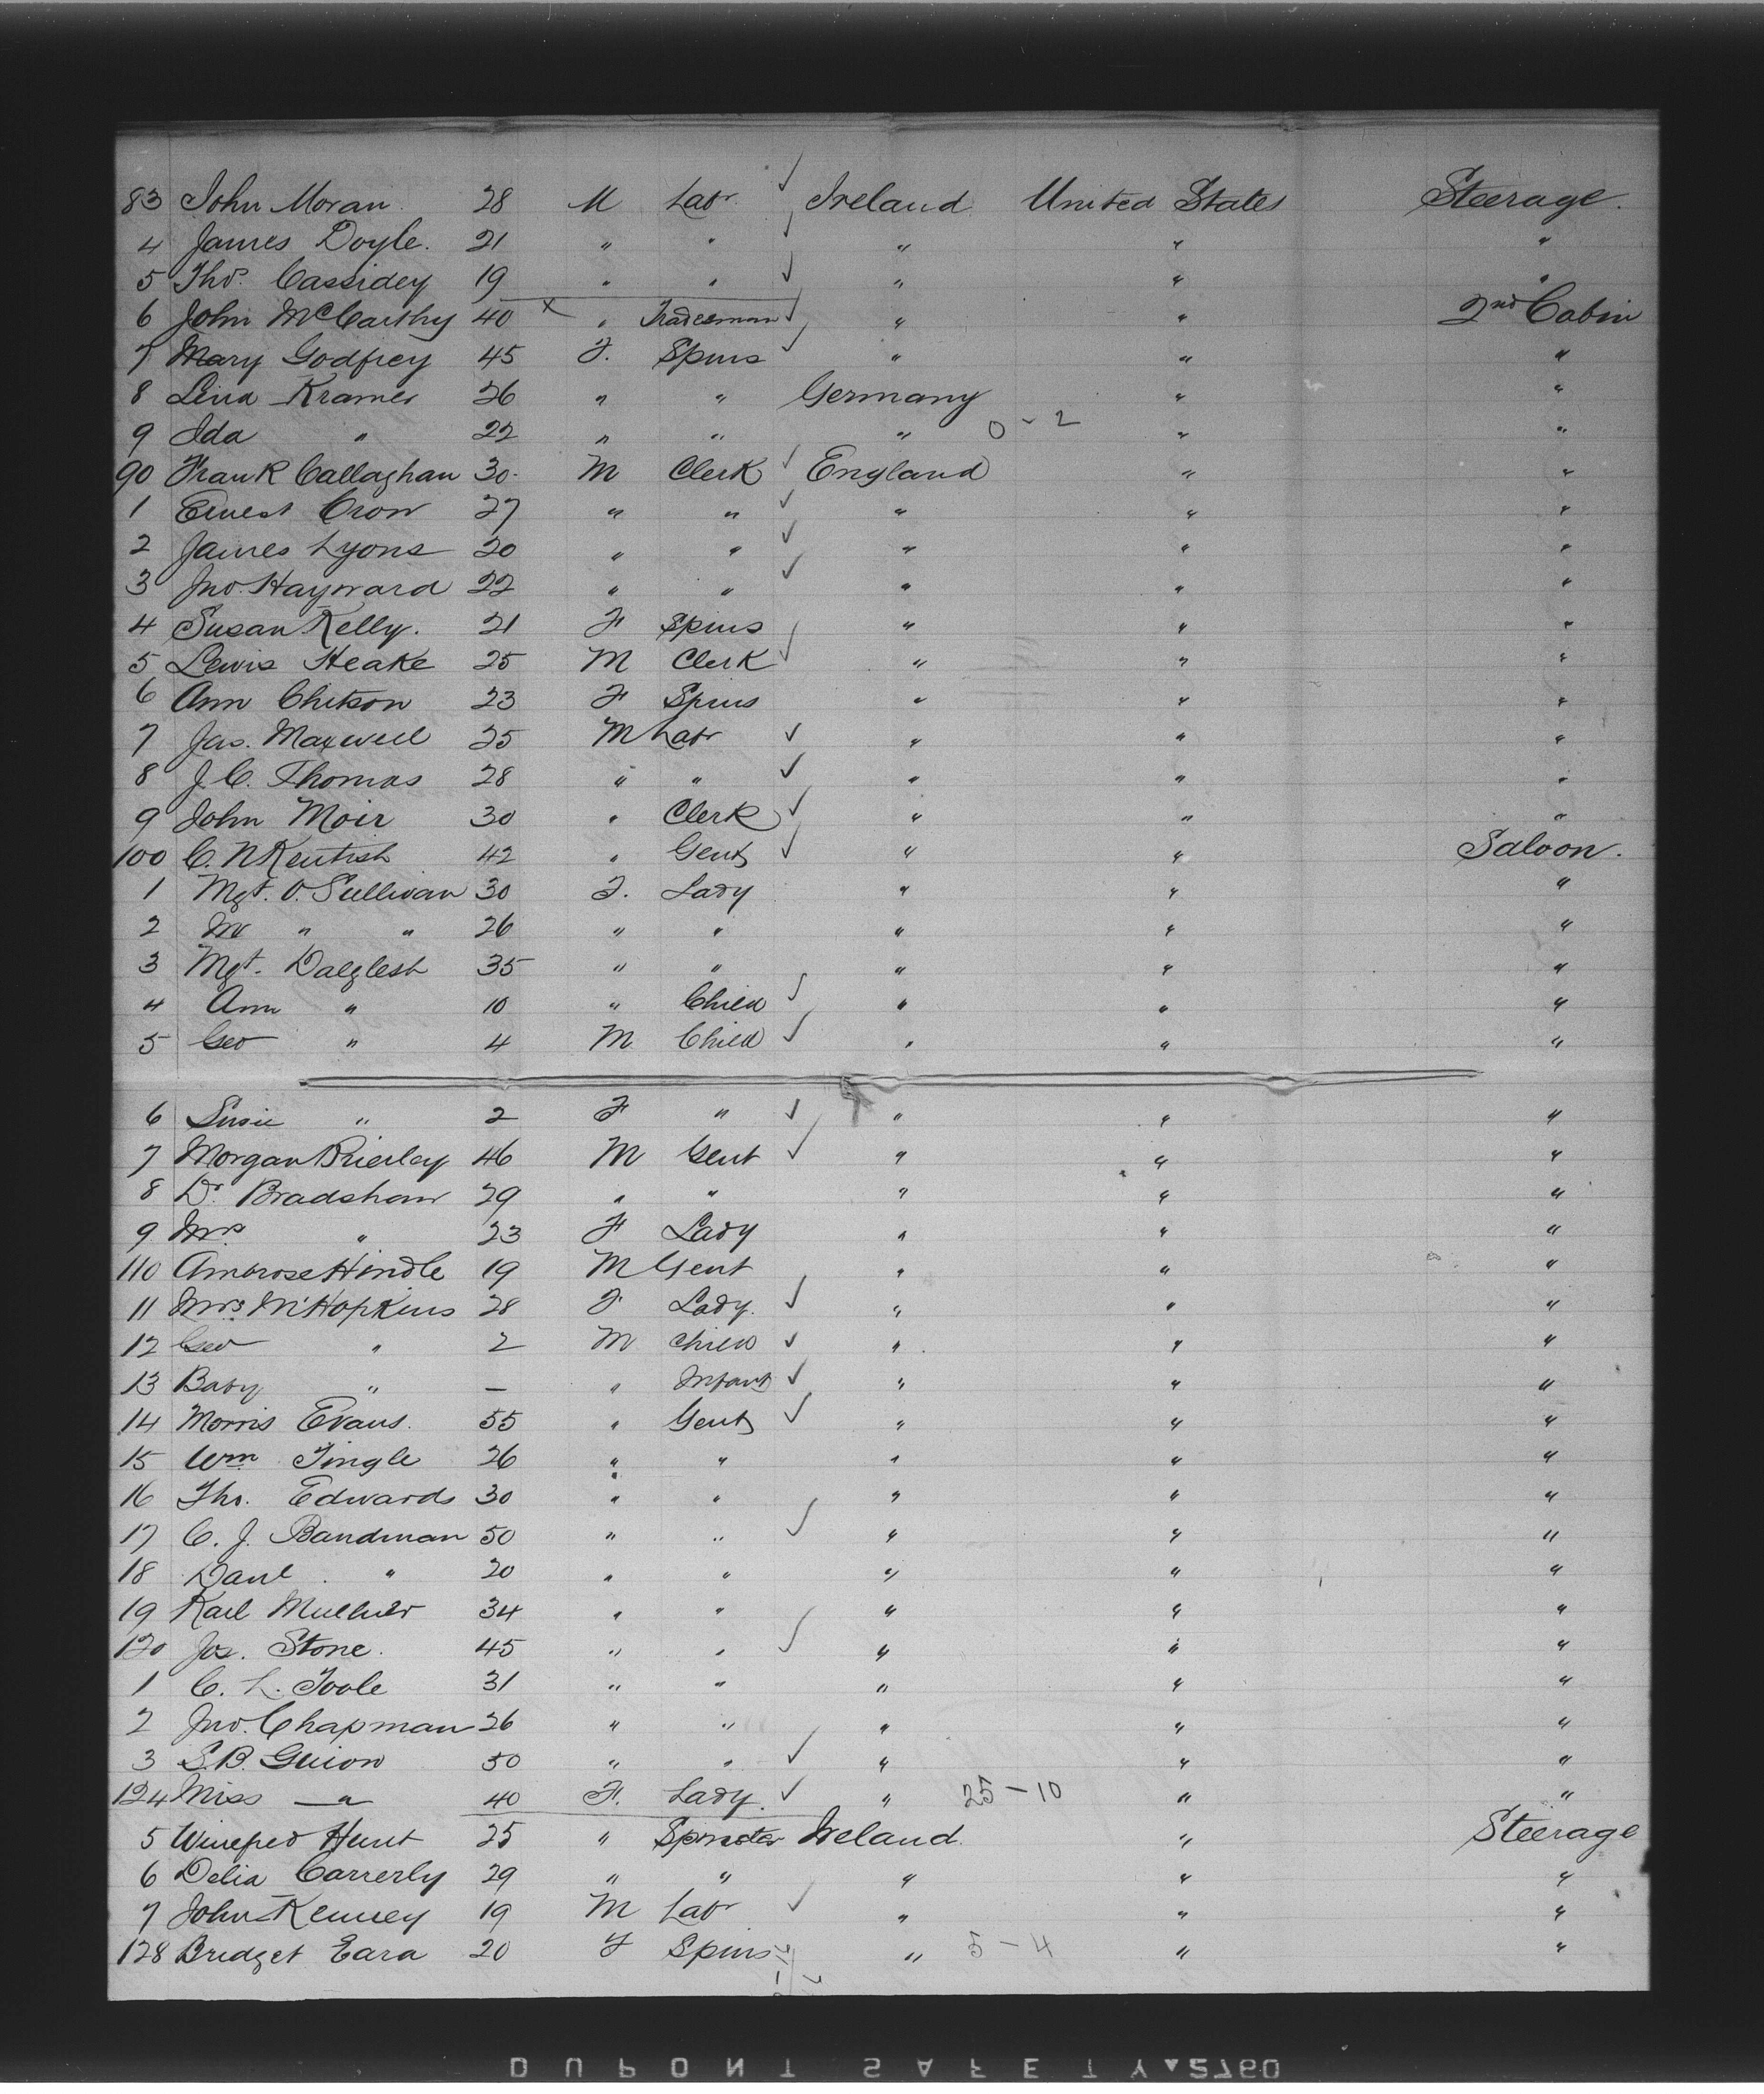 83 John Moran. 28 M Labr Ireland United States Steerage.
4 James Doyle. 21 " " " " "
5 Thos. Cassidey 19 " " " " "
6 John McCarthy 40 x " Tradesman " " 2nd Cabin
7 Mary Godfrey 45 F. Spins " " "
8 Lena Kramer 26 " " Germany " "
9 Ida " 22 " " " 0-2 " "
90 Frank Callaghan 30. M Clerk England " "
1 Ernest Crow 27 " " " " "
2 James Lyons 20 " " " " "
3 Jno. Hayward 22 " " " " "
4 Susan Kelly. 21 F Spins " " "
5 Lewis Heake 25 M Clerk " " "
6 Ann Chitson 23 F Spins " " "
7 Jas. Maxwell 25 M Labr " " "
8 J. C. Thomas 28 " " " " "
9 John Moir 30 " Clerk " " "
100 C. N Kentish 42 " Gent " " Saloon.
1 Mgt. O. Sullivan 30 F. Lady " " "
2 M " " 26 " " " " "
3 Mgt. Dalglesh 35 " " " " "
4 Ann " 10 " Child " " "
5 Geo " 4 M Child " " "
6 Susie " 2 F " " " "
7 Morgan Brierley 46 M Gent " " "
8 Dr. Bradshaw 29 " " " " "
9 Mrs " 23 F Lady " " "
110 Ambrose Hindle 19 M Gent " " "
11 Mrs. W Hopkins 28 F Lady. " " "
12 Geo " 2 M Child " " "
13 Baby " — " Infant " " "
14 Morris Evans. 55 " Gent " " "
15 Wm Tingle 26 " " " " "
16 Tho. Edwards 30 " " " " "
17 C. J. Bandman 50 " " " " "
18 Danl. " 20 " " " " "
19 Karl 34 " " " " "
120 Jos. Stone. 45 " " " " "
1 C. L. Toole 31 " " " " "
2 Jno. Chapman 26 " " " " "
3 S. B. Guion 50 " " " " "
124 Miss — " 40 F. Lady. " 25-10 " "
5 Winefred Hunt 25 " Spinster Ireland. " Steerage
6 Delia Carrerly 29 " " " " "
7 John Kenney 19 M Labr " " "
128 Bridget Eara 20 F Spins " 5-4 " "
DUPONT SAFETY 2760